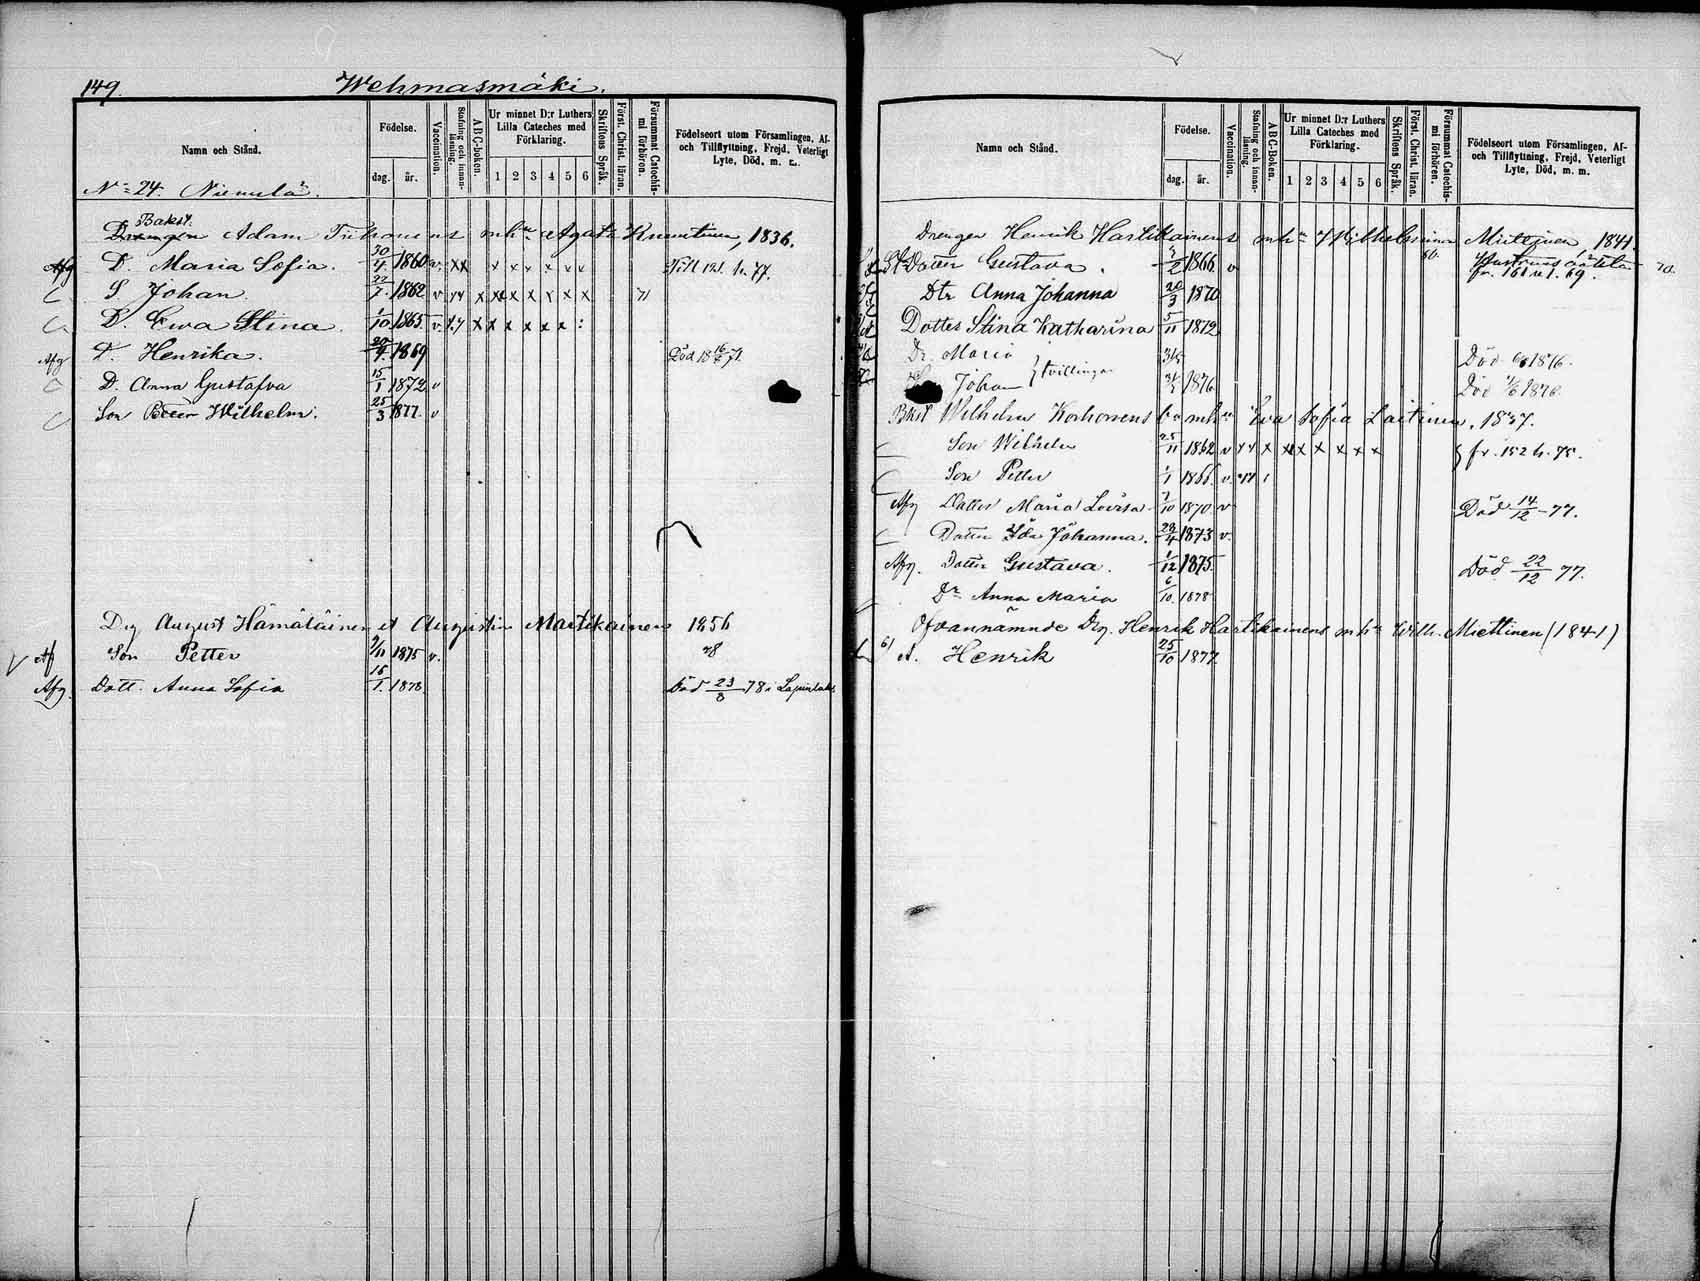 149. Wehmasmäki.
Namn och Stånd.
Födelse.
dag. år.
Vaccination.
Stafning och innanläsning.
A B C-boken.
Ur minnet D:r Luthers Lilla Cateches med Förklaring.
1 2 3 4 5 6
Skriftens Språk.
Först. Christ. läran.
Försummat Catechismi förhören.
Födelseort utom Församlingen, Af- och Tillflyttning, Frejd, Veterligt Lyte, Död, m. m.
No 24. Niemulä.
Bakst.
Drengen Adam mhu Agata 1836.
Afg D. Maria Sofia. 30/4 1860 v xx x x x x x x Till 121. h. 77.
S Johan. 1862 v x x x x x x x x 71
D. Ewa Stina. 1/10 1865 v x x x x x x x
Afg D. Henrika. 1869 Död 18 16/7 71.
D. Anna Gustafva 15/1 1872 v
Son Petter Wilhelm. 25/3 1877. v
Drg August Hämäläinen et Augustin Martikainens 1856
Af Son Petter 9/11 1875 v. 78
Afg. Dott. Anna Sofia 15/1. 1878. Död 23/8 78 i Lapinlaks
Namn och Stånd.
Födelse.
dag. år.
Vaccination.
Stafning och innanläsning.
A B C-boken.
Ur minnet D:r Luthers Lilla Cateches med Förklaring.
1 2 3 4 5 6
Skriftens Språk.
Först. Christ. läran.
Försummat Catechismi förhören.
Födelseort utom Församlingen, Af- och Tillflyttning, Frejd, Veterligt Lyte, Död, m. m.
Drengen Henrik Hartikainens mhu Wilhelmina Miettinen 1841.
Dotter Gustava. 1866. v 80. fr. 161 u 1. 69.
Dtr Anna Johanna 20/3 1870
Dotter Stina Katharina 5/11 1872
Dr. Maria Död 1876.
Johan } tvillingar 1876 Död 1876
Bkst Wilhelm Korhonens mhu Eva Sofia Laitinen, 1837.
Son Wilhelm 25/11 1862 v x x x x x x x x x fr. 152 h. 75.
Son Petter 1/1 1866. v.
Afg Dotter Maria Lovisa 7/10 1870 v Död 14/12 - 77.
Dotter Ida Johanna. 28/4 1873 v.
Afg. Dotter Gustava. 1/12 1875. Död 22/12 77.
Dr Anna Maria 6/10. 1878
Ofvannämnde Drg. Henrik Hartikainens mhu Wilh. Miettinen (1841)
61 Henrik 25/10 1877